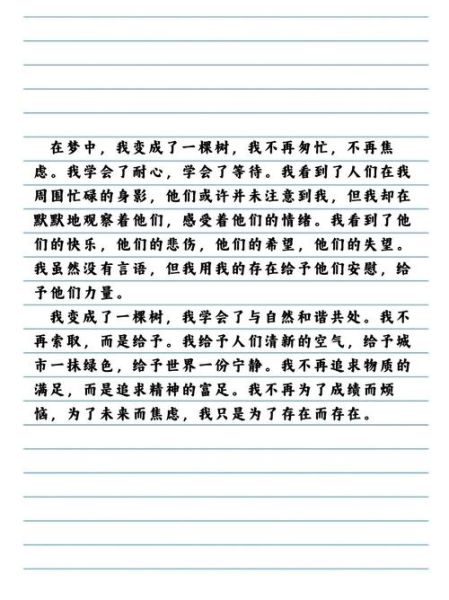 在梦中，我变成了一棵树，我不再匆忙，不再焦
虑。我学会了耐心，学会了等待。我看到了人们在我
周围忙碌的身影，他们或许并未注意到我，但我却在
默默地观察着他们，感受着他们的情绪。我看到了他
们的快乐，他们的悲伤，他们的希望，他们的失望。
我虽然没有言语，但我用我的存在给予他们安慰，给
予他们力量。
我变成了一棵树，我学会了与自然和谐共处。我不
再索取，而是给予。我给予人们清新的空气，给予城
市一抹绿色，给予世界一份宁静。我不再追求物质的
满足，而是追求精神的富足。我不再为了成绩而烦
恼，为了未来而焦虑，我只是为了存在而存在。